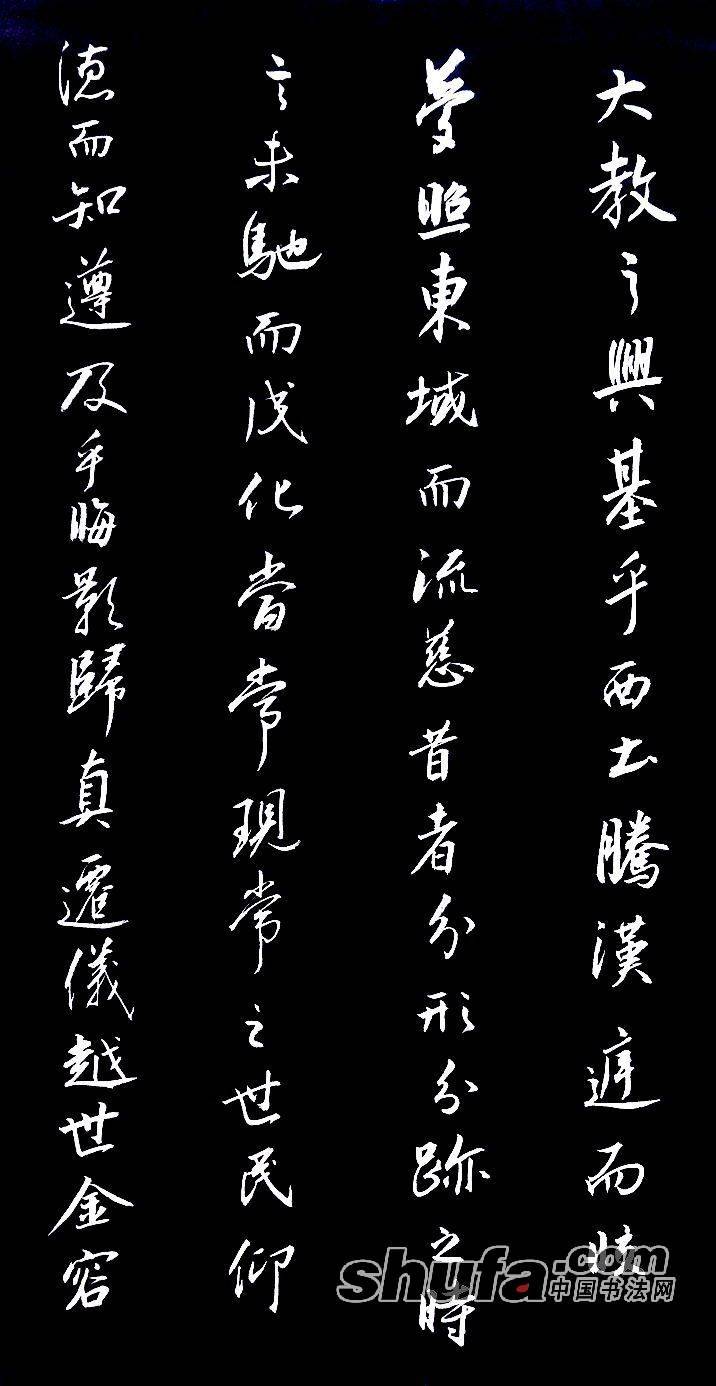 大教之興基乎西土騰漢庭而皎
夢照東域而流慈昔者分形分跡之時
言未馳而成化當常現常之世民仰
德而知遵及乎晦影歸真遷儀越世金容
shufa.com
中国书法网